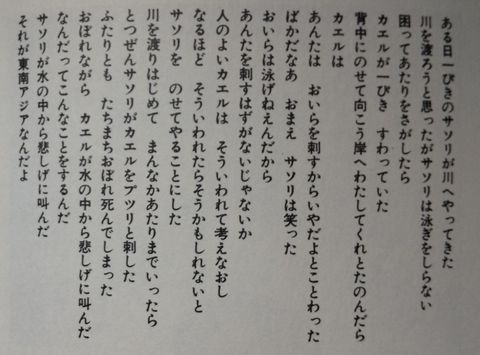 ある日一ぴきのサソリが川へやってきた
川を渡ろうと思ったがサソリは泳ぎをしらない
困ってあたりをさがしたら
カエルが一ぴき　すわっていた
背中にのせて向こう岸へわたしてくれとたのんだら
カエルは
あんたは　おいらを刺すからいやだよとことわった
ばかだなあ　おまえ　サソリは笑った
おいらは泳げねえんだから
あんたを刺すはずがないじゃないか
人のよいカエルは　そういわれて考えなおし
なるほど　そういわれたらそうかもしれないと
サソリを　のせてやることにした
川を渡りはじめて　まんなかあたりまでいったら
とつぜんサソリがカエルをプツリと刺した
ふたりとも　たちまちおぼれ死んでしまった
おぼれながら　カエルが水の中から悲しげに叫んだ
なんだってこんなことをするんだ
サソリが水の中から悲しげに叫んだ
それが東南アジアなんだよ